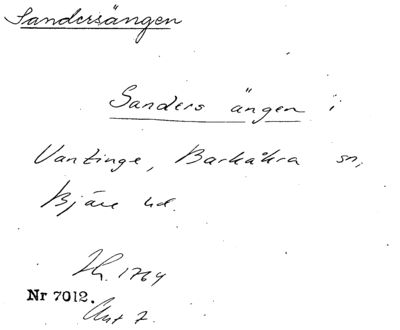 Sandersängen
Sanders ängen i
Vantinge, Barkåkra sn,
Bjäre hd.
Jh. 1764
Nr 7012.
Akt 7.